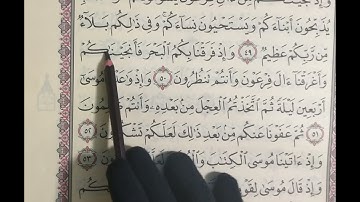 يُذَبِّحُونَ أَبْنَآءَكُمْ وَيَسْتَحْيُونَ نِسَآءَكُمْ وَفِى ذَٰلِكُم بَلَآءٌ
مِّن رَّبِّكُمْ عَظِيمٌ ٤٩ وَإِذْ فَرَقْنَا بِكُمُ ٱلْبَحْرَ فَأَنجَيْنَٰكُمْ
وَأَغْرَقْنَآ ءَالَ فِرْعَوْنَ وَأَنتُمْ تَنظُرُونَ ٥٠ وَإِذْ وَٰعَدْنَا مُوسَىٰٓ
أَرْبَعِينَ لَيْلَةً ثُمَّ ٱتَّخَذْتُمُ ٱلْعِجْلَ مِنۢ بَعْدِهِۦ وَأَنتُمْ ظَٰلِمُونَ
٥١ ثُمَّ عَفَوْنَا عَنكُم مِّنۢ بَعْدِ ذَٰلِكَ لَعَلَّكُمْ تَشْكُرُونَ ٥٢
وَإِذْ ءَاتَيْنَا مُوسَى ٱلْكِتَٰبَ تَهْتَدُونَ ٥٣
وَإِذْ قَالَ مُوسَىٰ لِقَوْمِهِۦ